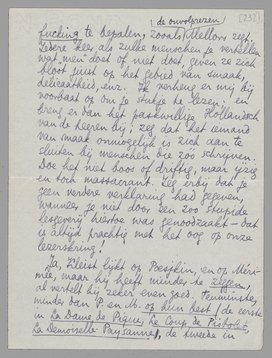 (de onvolprezen [232]
fucking te bepalen, zooals Mellors zegt.
Iedere keer als zulke menschen je vertellen
wat men doet of niet doet, geven ze zich
bloot juist op het gebied van smaak,
delicaatheid, enz. Ik verheug er mij bij
voorbaat op om je stukje te lezen; en
breng er van het pastwillige Hollandsch
van de heeren bij; zeg dat het iemand
van smaak onmogelijk is zich aan te
sluiten bij menschen die zoo schrijven.
Doe het niet boos of driftig, maar
en toch massacrant. Zeg erbij dat je
geen verdere verklaring had gegeven,
wanneer je niet door een zoo stupide
lesgeverij hiertoe was genoodzaakt – dat
is altijd prachtig met het oog op onze
lezerskring!
Ja, Kleist lijkt op Poesjkin, en op Méri-
mée, maar hij heeft minder te zeggen,
al vertelt hij zeker even goed. Tenminste,
minder dan P. en M. op hun best (de eerste
in La Dame de Pique, Le Coup de Pistolet,
La Demoiselle Paysanne), de tweede in